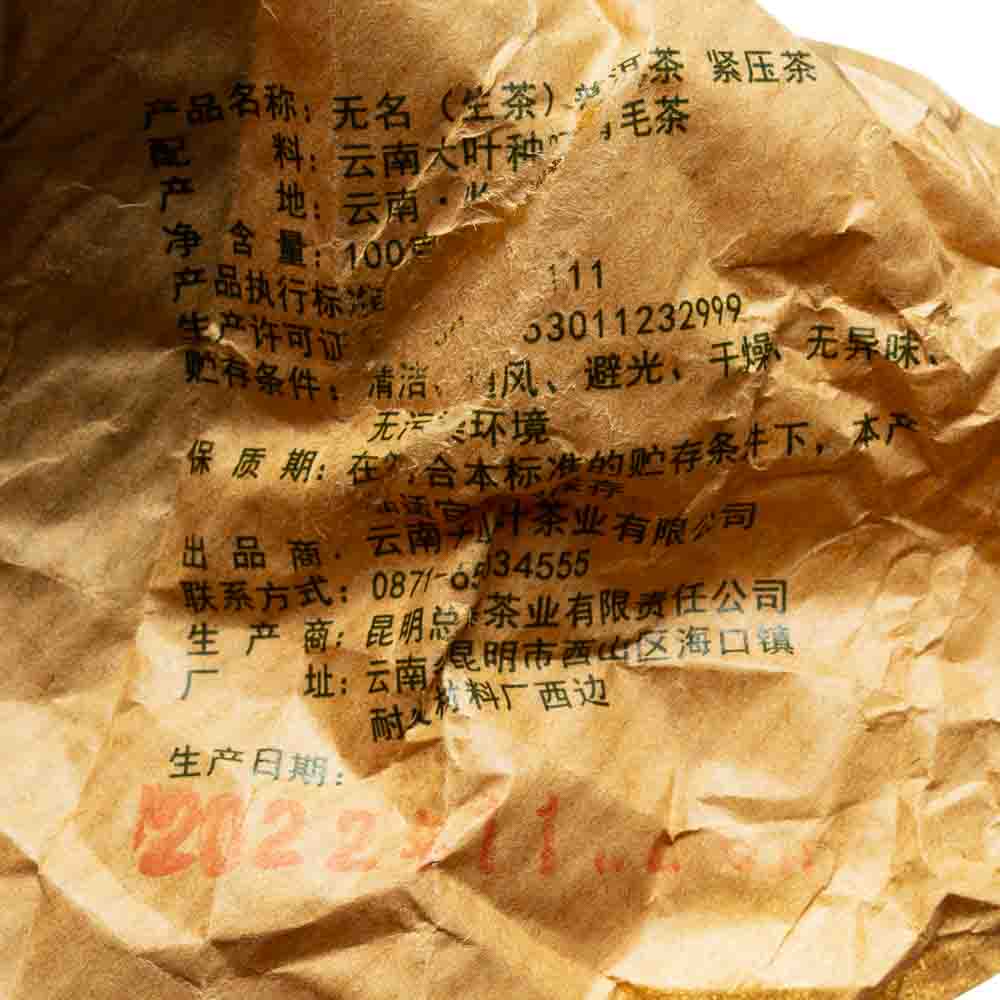 产品名称：无名（生茶）茶 紧压茶
配料：云南大叶种毛茶
产地：云南·
净含量：100
产品执行标 111
生产许可证 53011232999
贮存条件：清洁、风、避光、干燥、无异味、
无污环境
保质期：在合本标准的贮存条件下，本产
宜保存
出品商：云南叶茶业有限公司
联系方式：0871-6534555
生产商：昆明总茶业有限责任公司
厂址：云南昆明市西山区海口镇
耐火材料厂西边
生产日期：
2022 11